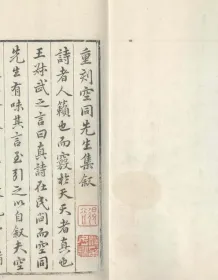 重刻空同先生集敘
詩者人籟也而竅於天天者真也
王叔武之言曰真詩在民間而空同
先生有味其言至引之以自敘夫空